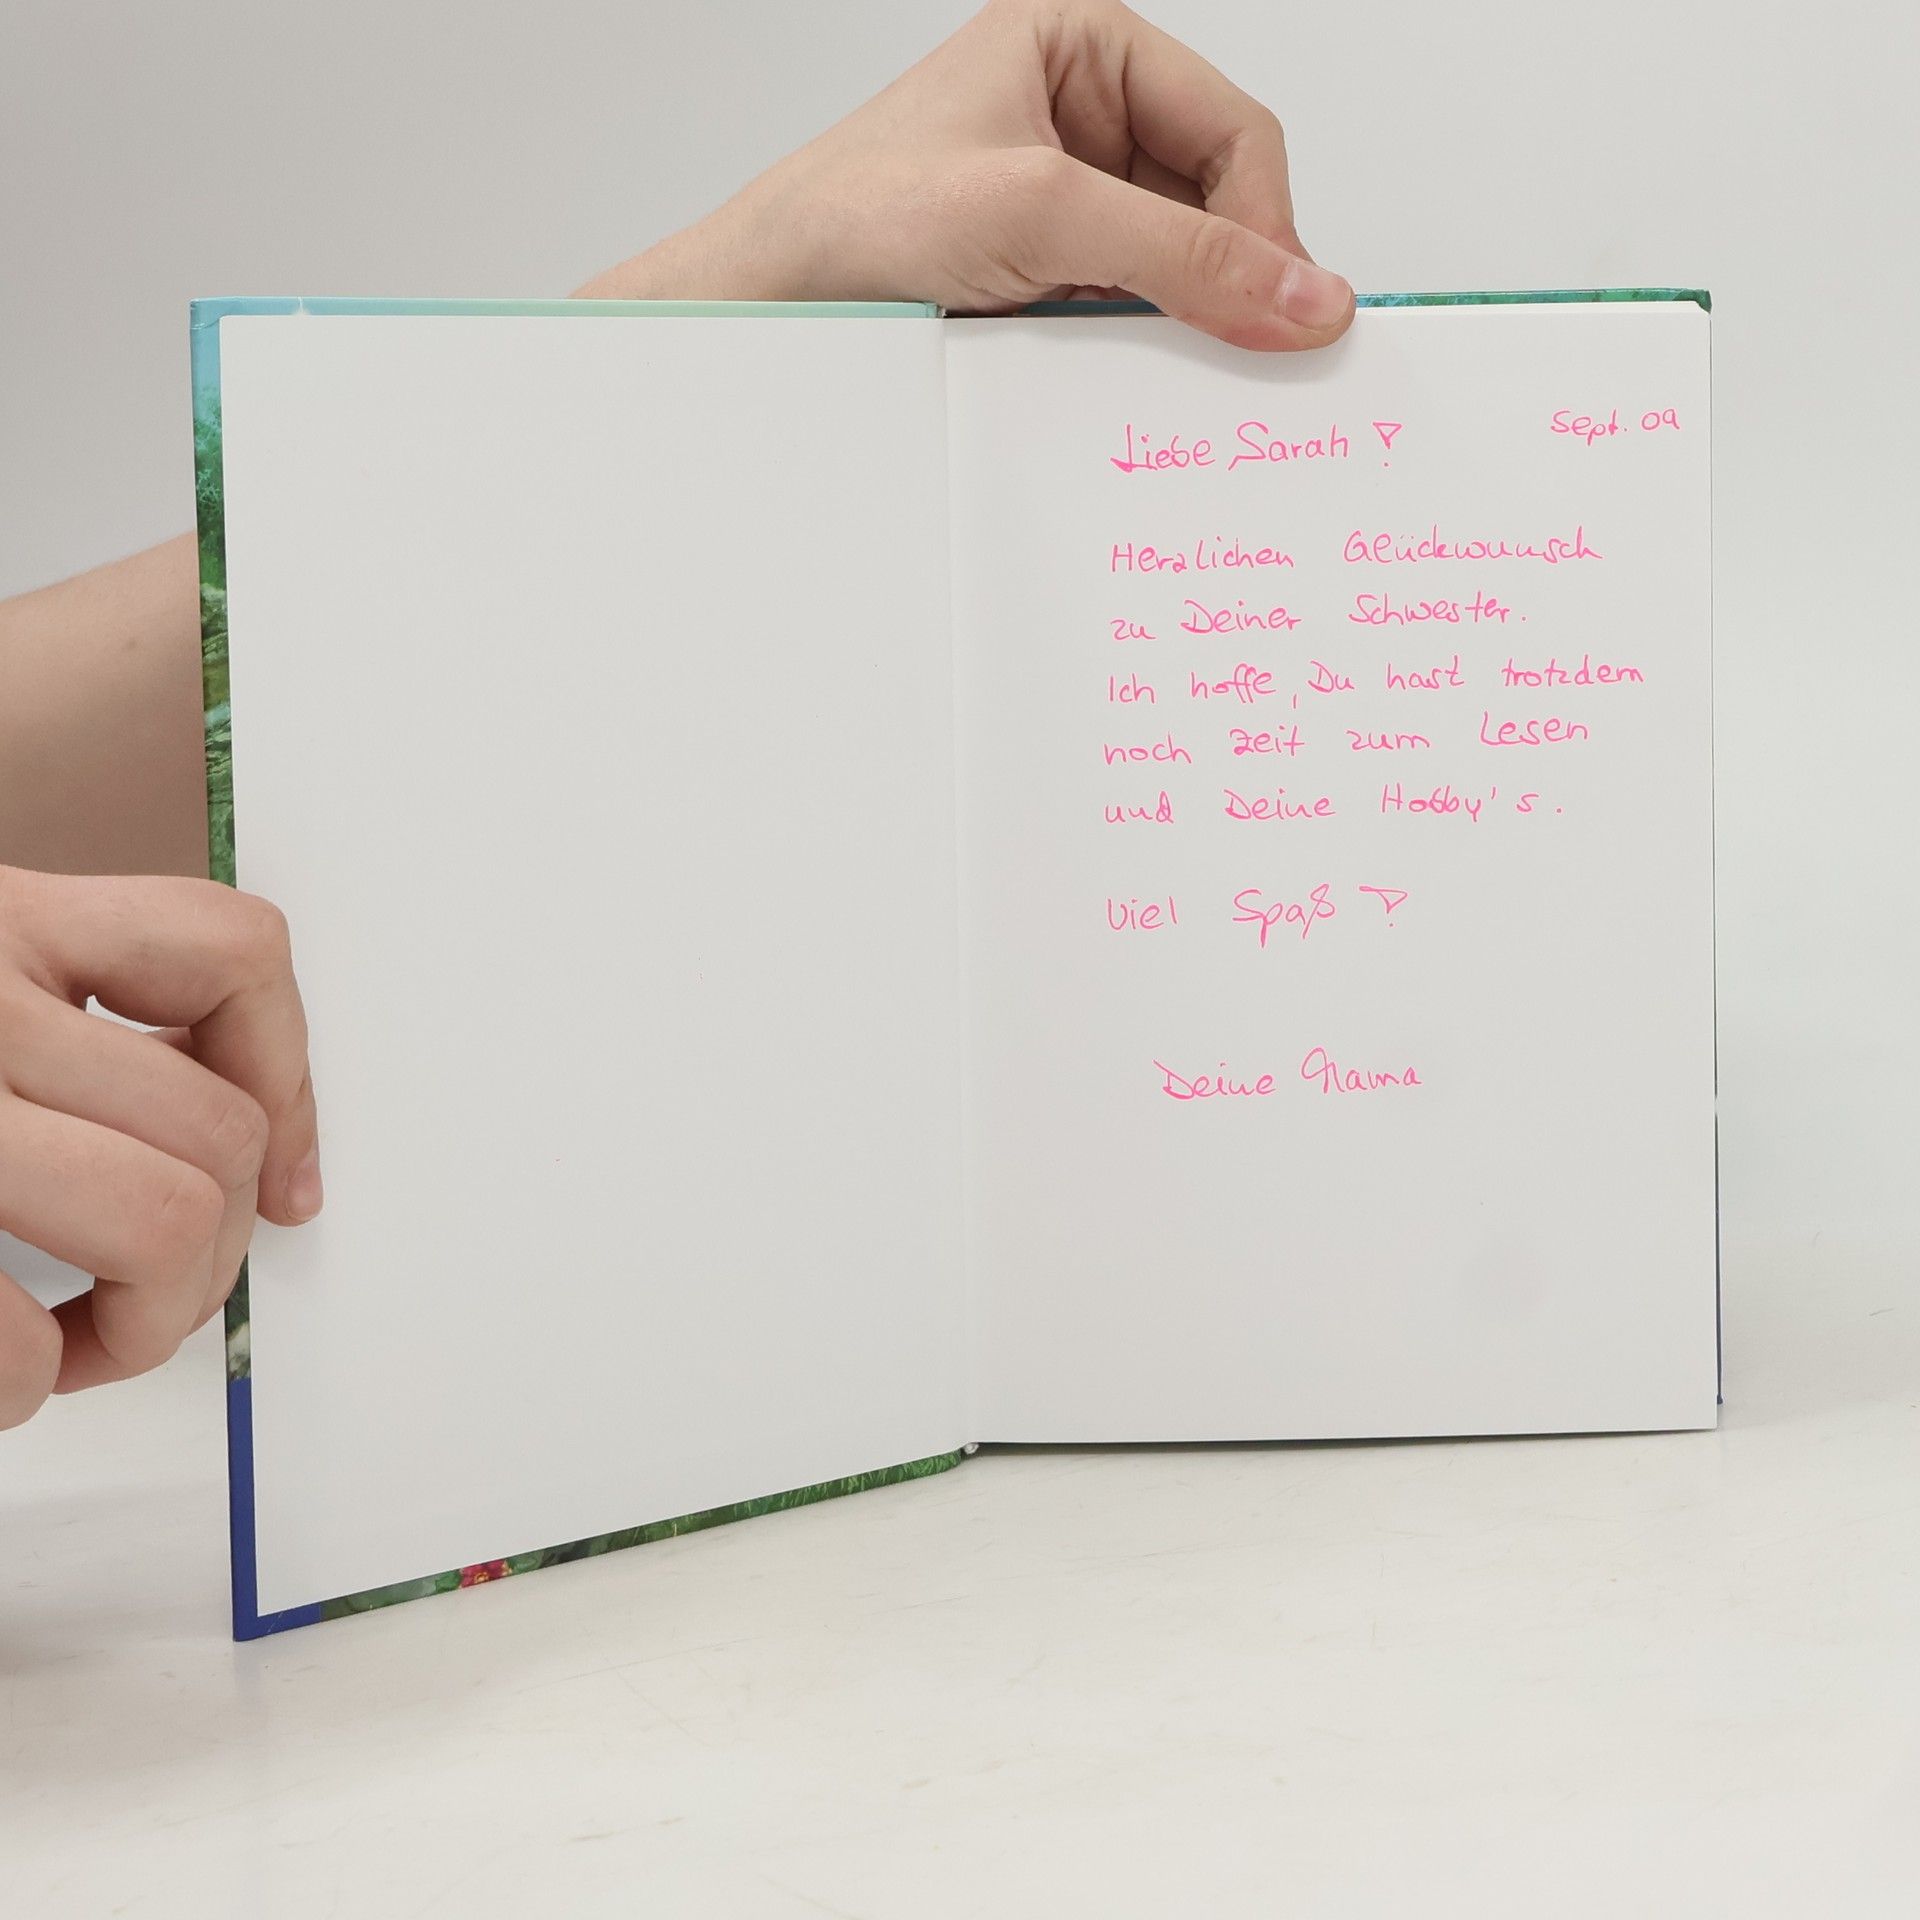 Sept. 09
Liebe Sarah!
Herzlichen Glückwunsch
zu Deiner Schwester.
Ich hoffe, Du hast trotzdem
noch Zeit zum Lesen
und Deine Hobby's.
Viel Spaß!
Deine Mama